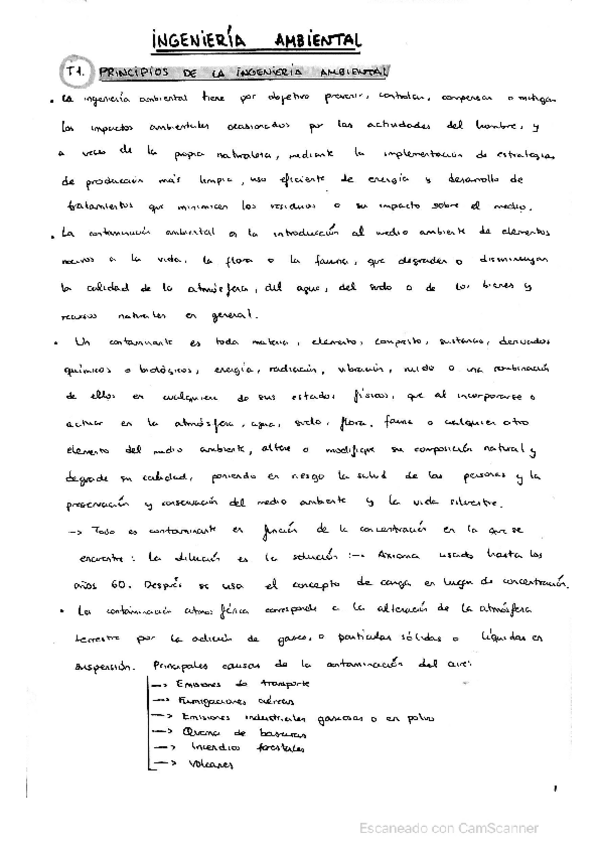 INGENIERÍA AMBIENTAL
T1. PRINCIPIOS DE LA INGENIERIA AMBIENTAL
• La ingeniería ambiental tiene por objetivo prevenir, controlar, compensar o mitigar
los impactos ambientales ocasionados por las actividades del hombre, y
a veces de la propia naturaleza, mediante la implementación de estrategias
de producción más limpia, uso eficiente de energía y desarrollo de
tratamientos que minimicen los residuos o su impacto sobre el medio.
• La contaminación ambiental es la introducción al medio ambiente de elementos
nocivos a la vida, la flora o la fauna, que degraden o disminuyan
la calidad de la atmósfera, del agua, del suelo o de los bienes y
recursos naturales en general.
• Un contaminante es toda materia, elemento, compuesto, sustancia, derivados
químicos o biológicos, energía, radiación, vibración, ruido o una combinación
de ellos en cualquiera de sus estados físicos, que al incorporarse o
actuar en la atmósfera, agua, suelo, flora, fauna o cualquier otro
elemento del medio ambiente, altere o modifique su composición natural y
degrade su calidad, poniendo en riesgo la salud de las personas y la
preservación y conservación del medio ambiente y la vida silvestre.
-> Todo es contaminante en función de la concentración en la que se
encuentre: la dilución es la solución :-> Axioma usado hasta los
años 60. Después se usa el concepto de carga en lugar de concentración.
• La contaminación atmosférica corresponde a la alteración de la atmósfera
terrestre por la adición de gases, o partículas sólidas o líquidas en
suspensión. Principales causas de la contaminación del aire:
-> Emisiones de transporte
-> Fumigaciones aéreas
-> Emisiones industriales gaseosas o en polvo
-> Quema de basuras
-> Incendios forestales
-> Volcanes
1
Escaneado con CamScanner